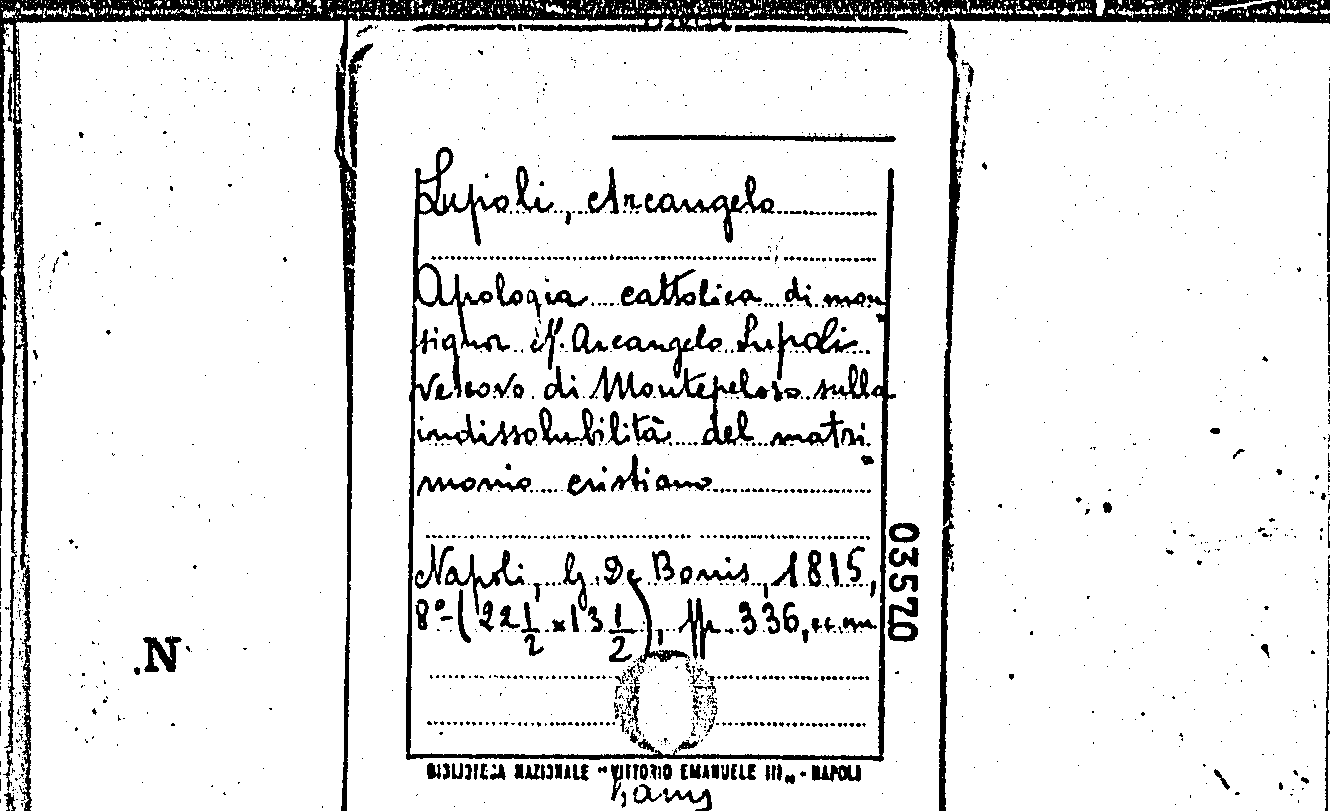 Lupoli, Arcangelo
Apologia cattolica di mon-
signor M. Arcangelo Lupoli
vescovo di Montepeloso sulla
indissolubilità del matri-
monio cristiano
Napoli, G. De Bonis, 1815,
8º-(22 1/2 x 13 1/2), pp. 336,
03520
.N
BIBLIOTECA NAZIONALE "VITTORIO EMANUELE III„ - NAPOLI